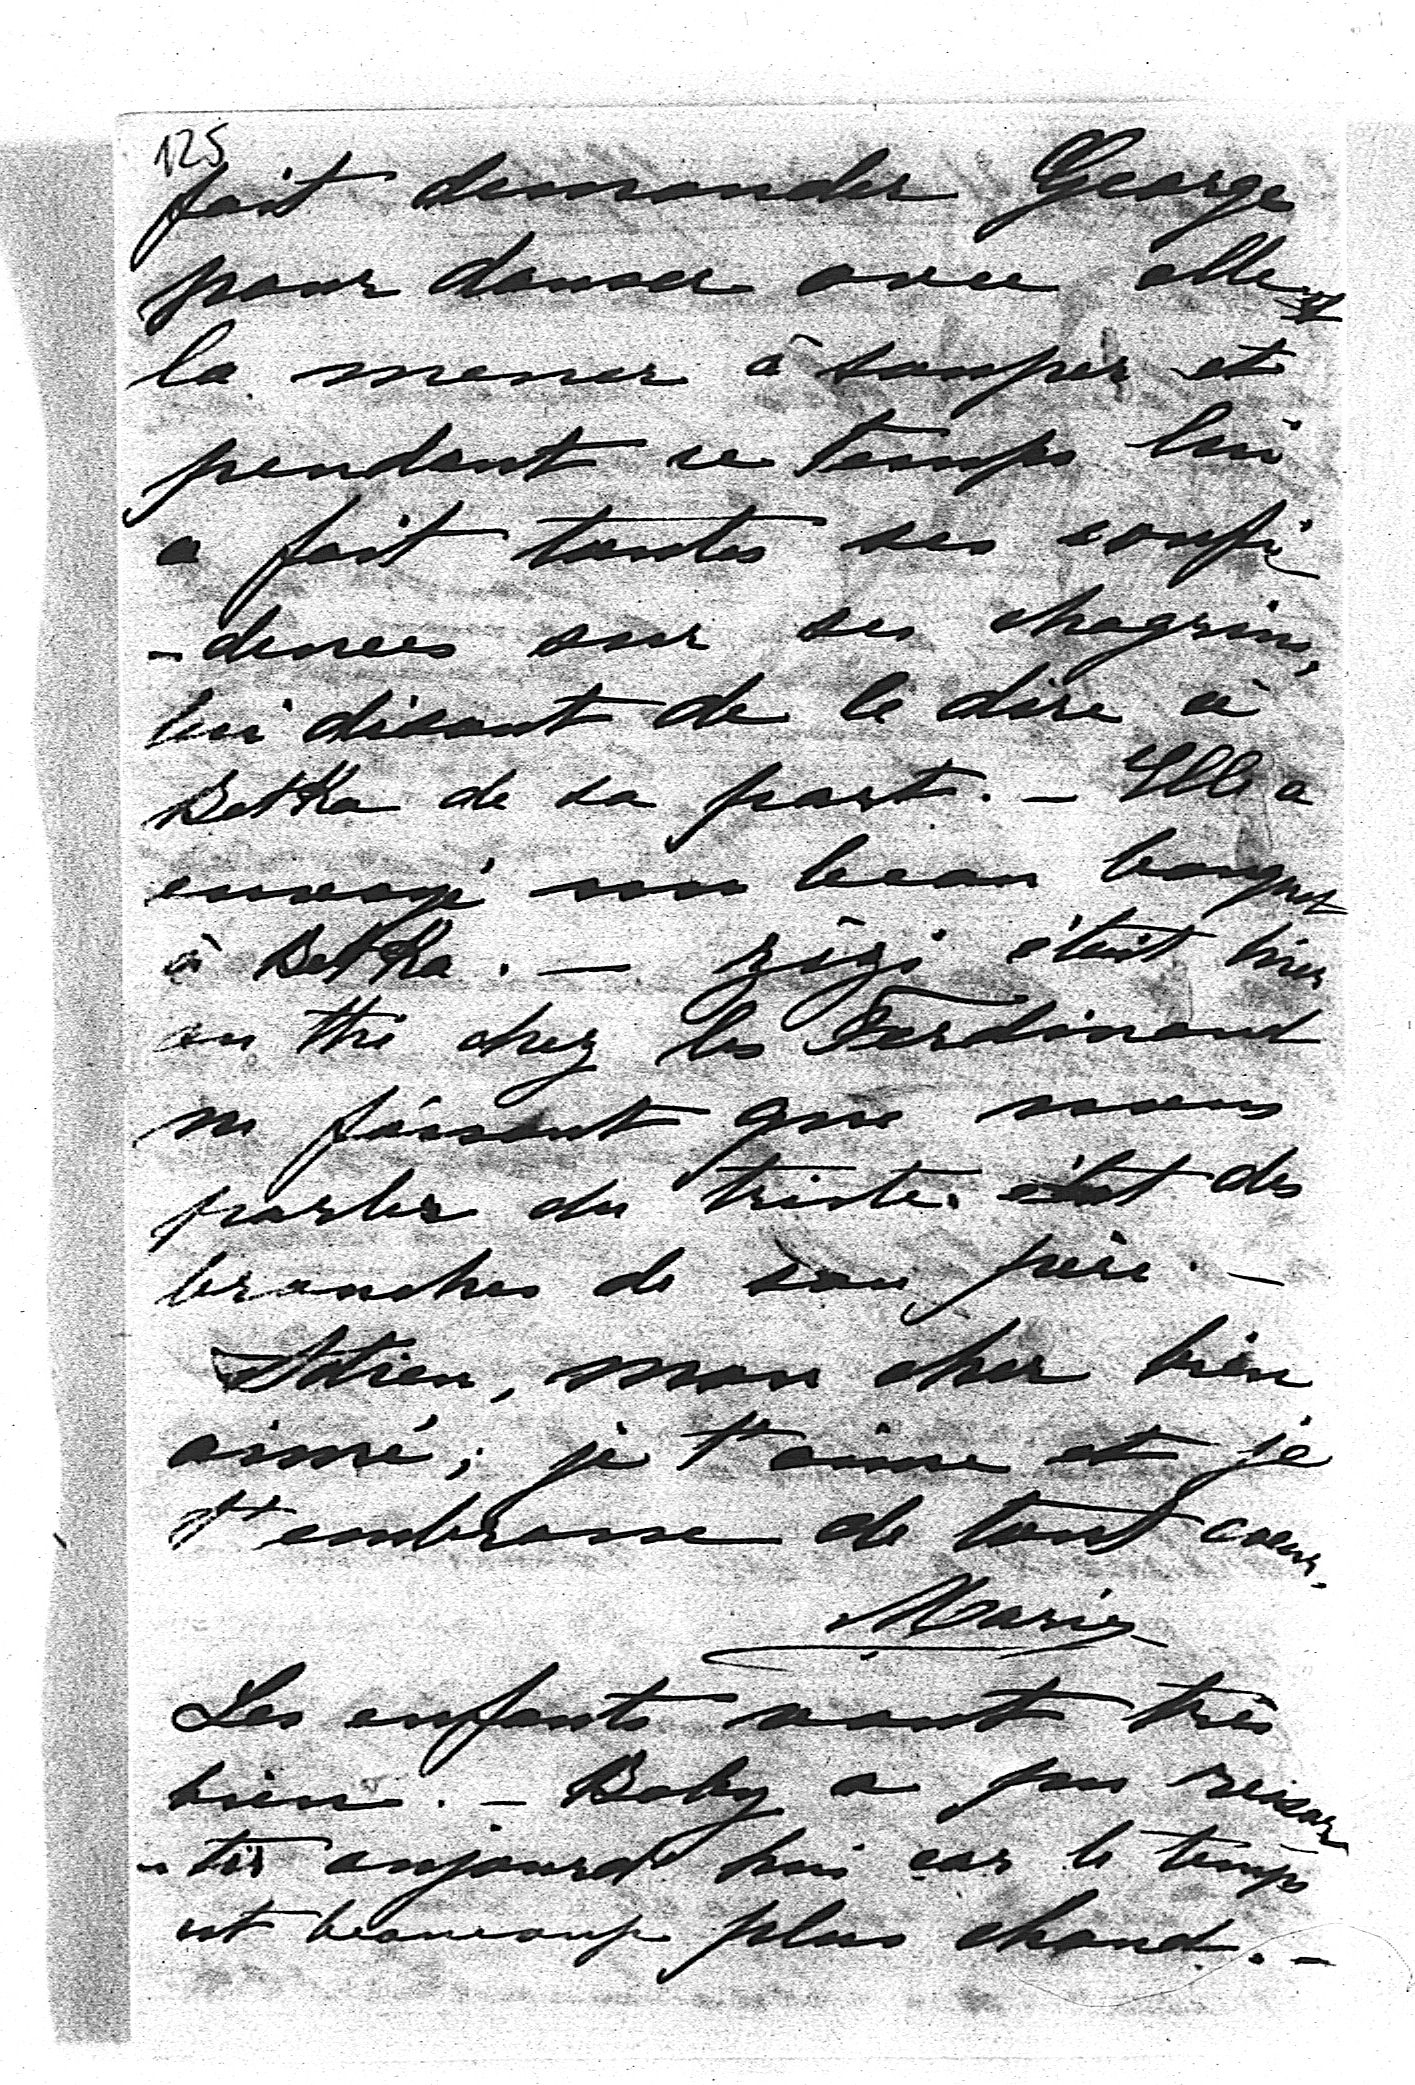 125
fait demander George
pour danser avec elle et
la mener à souper et
pendant ce temps lui
a fait toutes ses confi
-dences sur ses chagrins,
lui disant de le dire à
Betka de sa part. — Elle a
envoyé un beau bouquet
à Betka. — Zizi était hier
au thé chez les Ferdinand
ne faisant que nous
parler du triste état des
bronches de son père. —
Adieu, mon cher bien
aimé; je t'aime et je
t'embrasse de tout coeur.
Marie
Les enfants vont très
bien. — Baby a pu ressor
-tir aujourd'hui car le temps
est beaucoup plus chaud. —